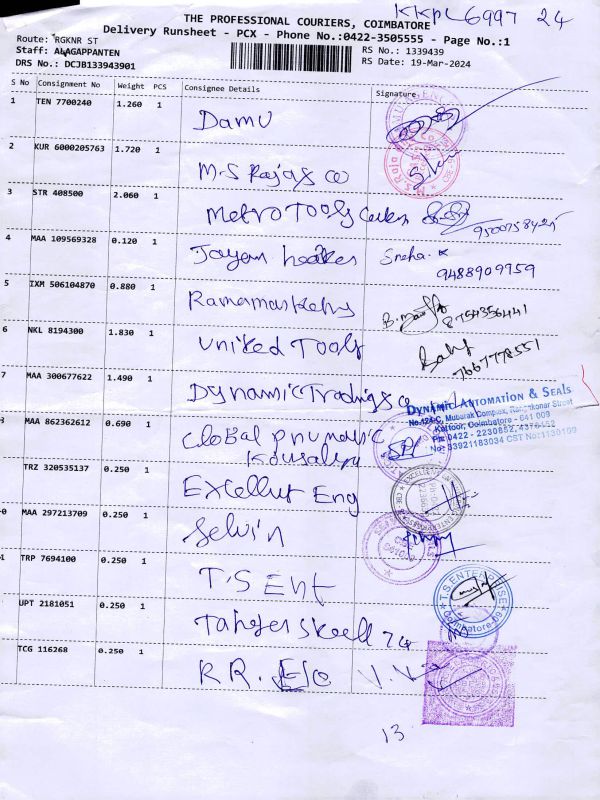 KKPL 6997 24
THE PROFESSIONAL COURIERS, COIMBATORE
Delivery Runsheet - PCX - Phone No.:0422-3505555 - Page No.:1
Route: RGKNR ST
RS No.: 1339439
Staff: ALAGAPPANTEN
RS Date: 19-Mar-2024
DRS No.: DCJB133943901
S No Consignment No Weight PCS Consignee Details Signature
1 TEN 7700240 1.260 1
Damu
2 KUR 6000205763 1.720 1
M.S Rajas co
3 STR 408500 2.060 1
Metro Tools
4 MAA 109569328 0.120 1
Sneha. K
9488909959
5 IXM 506104870 0.880 1
8754356441
6 NKL 8194300 1.830 1
United Tools
7667778551
7 MAA 300677622 1.490 1
Dynamic Trading co
DYNAMIC AUTOMATION & SEALS
No.124-C, Mubarak Complex, Rangakonar Street
Kattoor, Coimbatore - 641 009
Ph: 0422 - 2230852, 4376452
No: 33921183034 CST No: 1130109
MAA 862362612 0.690 1
Global
TRZ 320535137 0.250 1
Eng
0 MAA 297213709 0.250 1
Selvin
1 TRP 7694100 0.250 1
T.S Ent
T.S. ENTERPRISE
Coimbatore
UPT 2181051 0.250 1
TCG 116268 0.250 1
R.R.
13